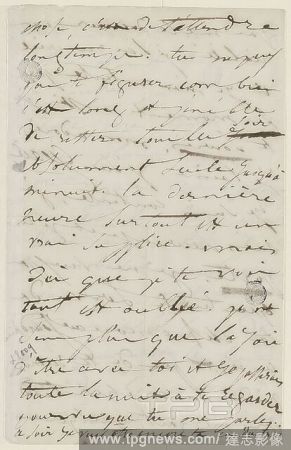 chose, c'est de t'attendre
longtemps. tu ne peux
pas te figurer combien
c'est long et pénible
de rester tous les soirs
absolument seule jusqu'à
minuit. la dernière
heure surtout est un
vrai supplice. mais
dès que je te vois
tout est oublié je n'ai
plus que la joie
d'être avec toi et je passerais
toute la nuit à te regarder
pourvu que tu me parles
à soir
www.tpgnews.com/ 達志影像
TPG